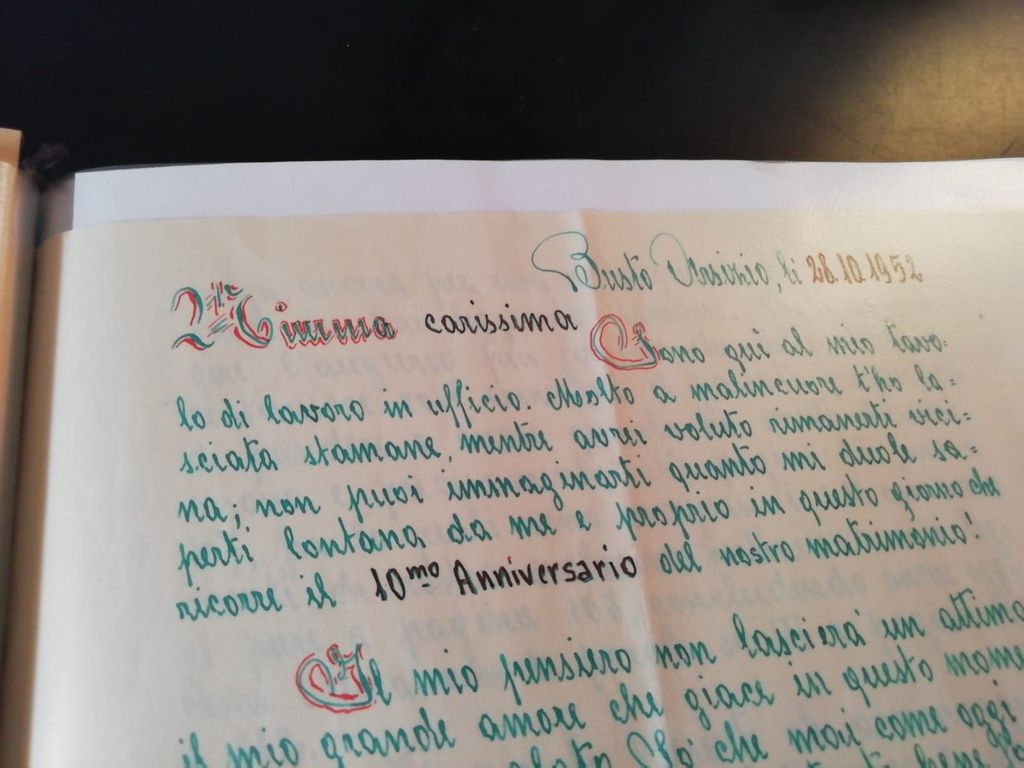 Busto Arsizio, li 28.10.1952
Mimma carissima
Sono qui al mio tavo=
lo di lavoro in ufficio. Molto a malincuore t'ho la=
sciata stamane, mentre avrei voluto rimanerti vici=
na; non puoi immaginarti quanto mi duole sa=
perti lontana da me e proprio in questo giorno che
ricorre il 10mo Anniversario del nostro matrimonio!
Il mio pensiero non lascierà un attimo
il mio grande amore che giace in questo mome
Lo che mai come oggi
bene